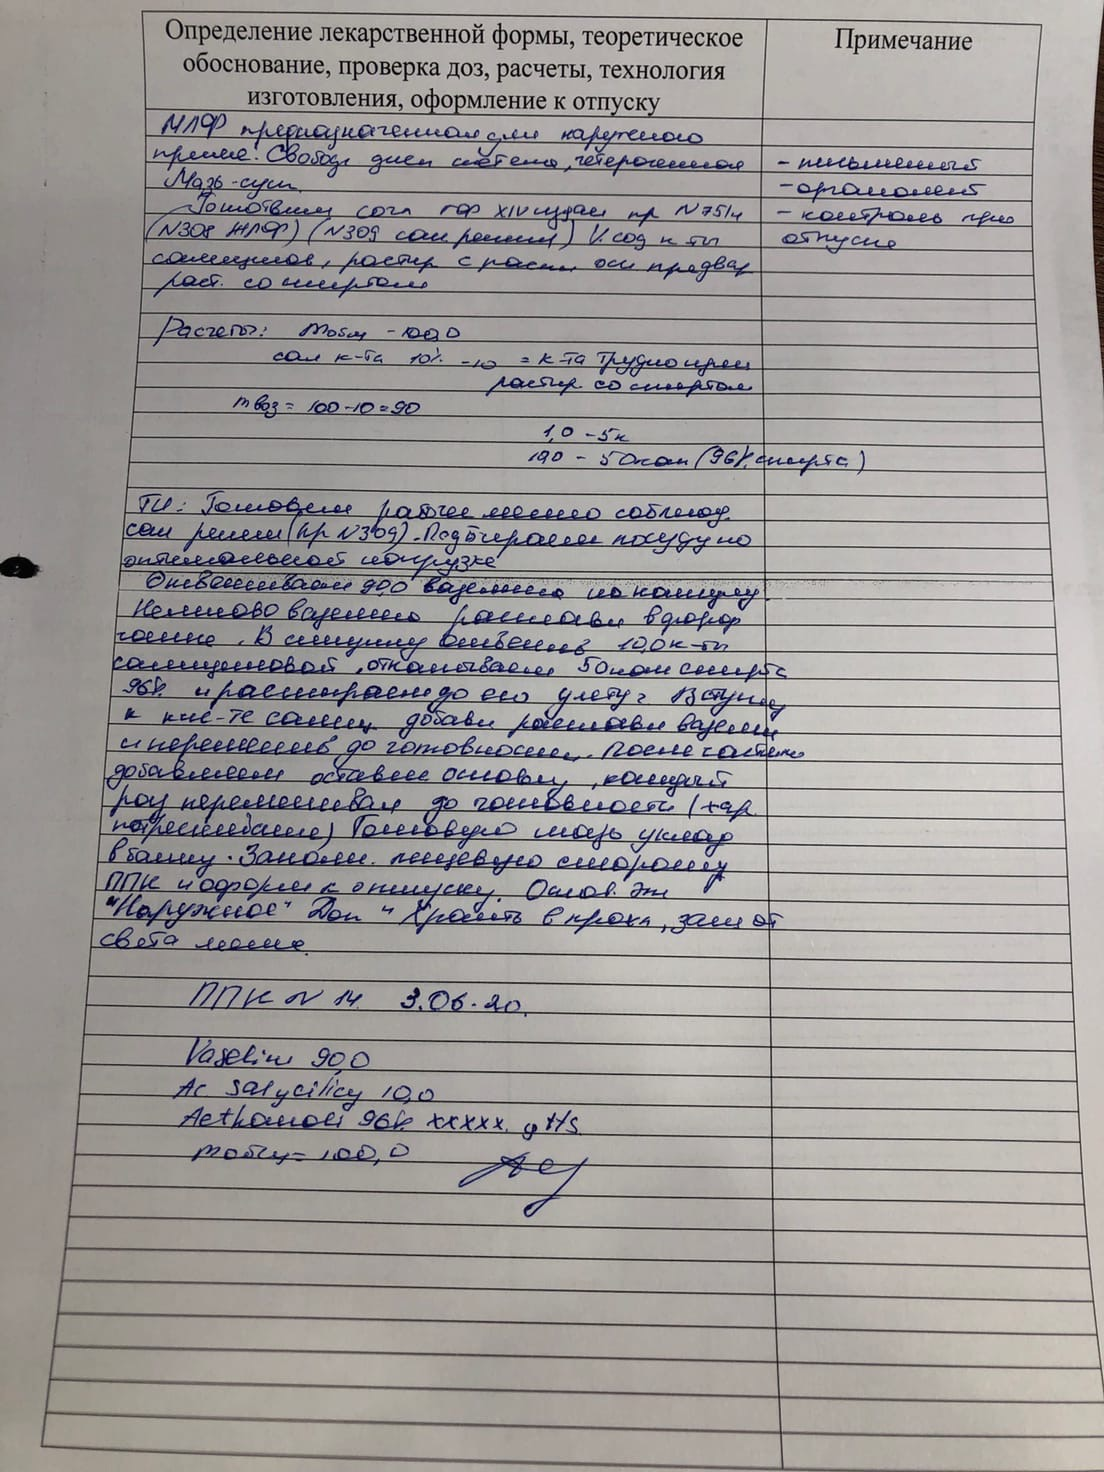 Определение лекарственной формы, теоретическое
обоснование, проверка доз, расчеты, технология
изготовления, оформление к отпуску
Примечание
МЛФ предназначенная для наружного
приме. Свобод дисп система, гетерогенная
Мазь-сусп.
Готовим согл ГФ XIV издан пр N751н
(N308 ЖЛФ) (N309 сан режим) V. сод к-ты
салицилов, растир с раств осн предвар
раст. со спиртом
- письменный
- органолепт
- контроль при
отпуске
Расчеты: mобщ - 100,0
сал к-та 10% - 10 = к-та трудно изм
растир со спиртом
mваз = 100-10=90
1,0 - 5к
10,0 - 50кап (96% спирта)
ТИ: Готовим рабочее место соблюд.
сан режим (пр N309). Подбираем посуду по
оптимальной нагрузке
Отвешиваем 90,0 вазелина на капсулу.
Немного вазелина расплавл в фарфор
чашке. В ступку отвешив 10,0 к-ты
салициловой, откапываем 50кап спирта
96% и растираем до его улетуч. В ступку
к кис-те салиц. добавл расплавл вазелин
и перемешив до готовности. После частями
добавляем оставш основу, каждый
раз перемешивая до готовности (хар.
потрескивание) Готовую мазь уклад
в банку. Заполн. лицевую сторону
ППК и оформ к отпуску. Основ. эт
"Наружное" Доп " Хранить в прохл, защ от
света месте
ППК N 14 3.06.20.
Vaselini 90,0
Ac salycilicy 10,0
Aethanoli 96% xxxxx. gtts.
mобщ = 100,0